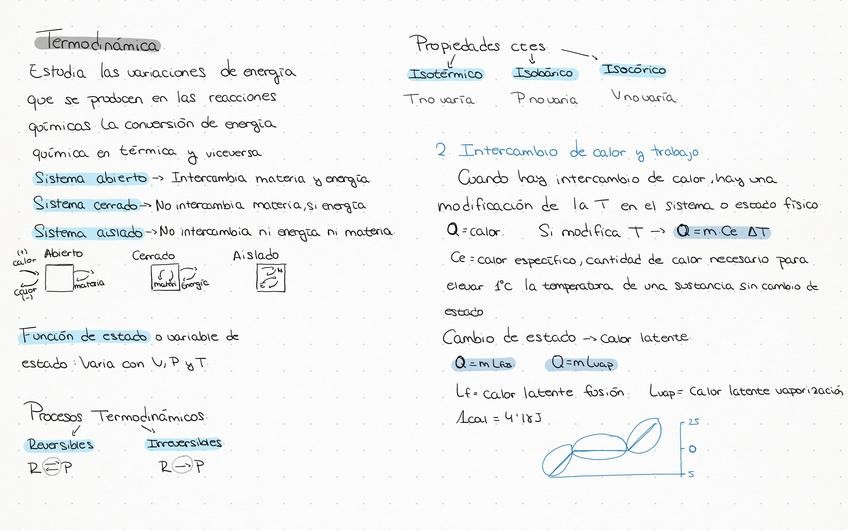 Termodinámica
Estudia las variaciones de energía
que se producen en las reacciones
químicas. La conversión de energía
química en térmica y viceversa
Sistema abierto -> Intercambia materia y energía
Sistema cerrado -> No intercambia materia, si energía
Sistema aislado -> No intercambia ni energía ni materia.
(+) calor Abierto Cerrado Aislado
calor (-) materia materi energía
Función de estado o variable de
estado: Varia con V, P y T.
Procesos Termodinámicos.
Reversibles Irreversibles
R ⇌ P R → P
Propiedades ctes
Isotérmico Isobárico Isocórico
T no varía P no varia V no varía
2 Intercambio de calor y trabajo
Cuando hay intercambio de calor, hay una
modificación de la T en el sistema o estado físico.
Q = calor. Si modifica T -> Q = m Ce ΔT
Ce = calor específico, cantidad de calor necesario para
elevar 1°C la temperatura de una sustancia sin cambio de
estado
Cambio de estado -> Calor latente.
Q = m Lfus Q = m Lvap
Lf = calor latente fusión. Lvap = Calor latente vaporización
1 cal = 4'18 J
25
0
5